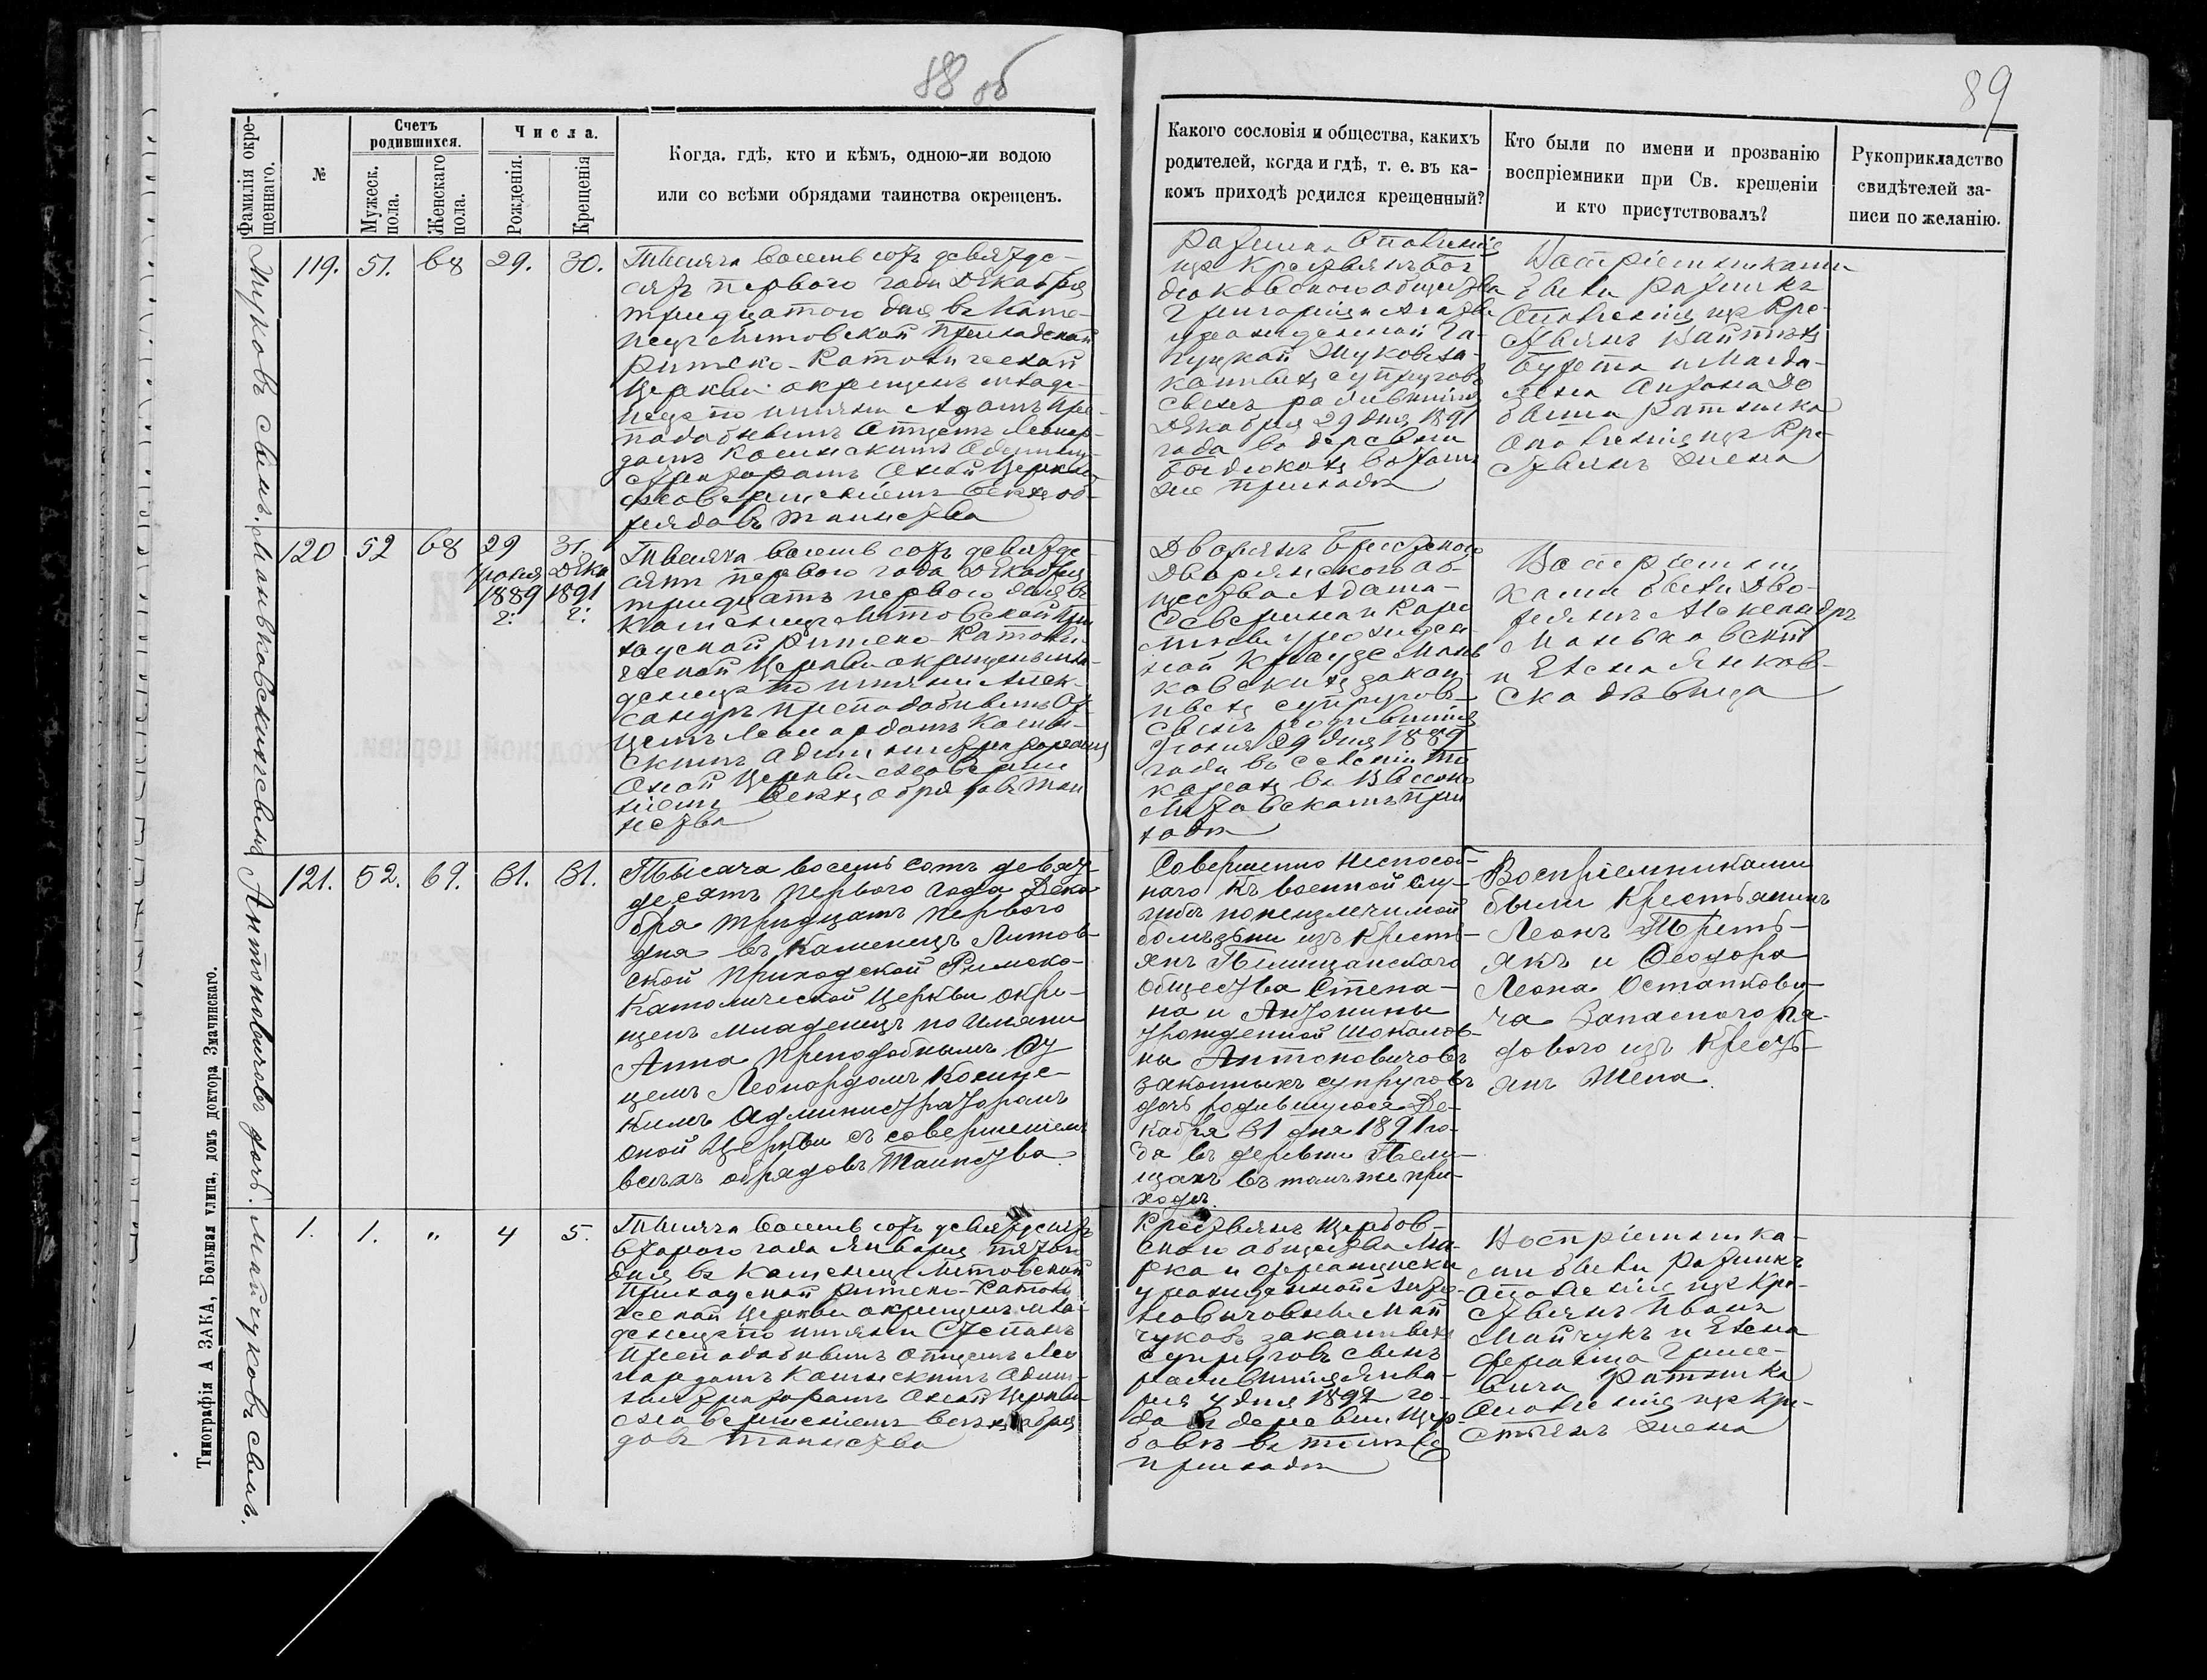 88 об
89
Фамилія окре-
щеннаго.
№
Счетъ
родившихся.
Мужеск.
пола.
Женскаго
пола.
Числа.
Рожденія.
Крещенія
Когда, гдѣ, кто и кѣмъ, одною-ли водою
или со всѣми обрядами таинства окрещенъ.
Какого сословія и общества, какихъ
родителей, когда и гдѣ, т. е. въ ка-
комъ приходѣ родился крещенный?
Кто были по имени и прозванію
воспріемники при Св. крещеніи
и кто присутствовалъ?
Рукоприкладство
свидѣтелей за-
писи по желанію.
Жуковъ сынъ.
119. 51. 68 29. 30.
Тысяча восемь сотъ девятде-
сятъ первого года Декабря
тридцатого дня въ Каме-
нецъ Литовской Приходской
Римско-Католической
Церкви окрещенъ младе-
нецъ по имяни Адамъ Пре-
подобнымъ Отцемъ Леонар-
домъ Косинскимъ Админи-
страторомъ оной Церкви
совершеніемъ всехъ об-
рядовъ таинства
Ратника Ополченія
изъ Крестьянъ
общества
Григорія и
урожденной Га-
Жуковъ за-
конныхъ супруговъ
сынъ родившійся
Декабря 29 дня 1891
года въ деревни
въ томъ
же приходѣ
Воспріемниками
были Ратникъ
Ополченія изъ Кре-
стьянъ
и Магда-
лена Антона
Ратника
Ополченія изъ Кре-
стьянъ жена
Маньковскихъ сынъ
120 52 68 29 31.
Іюня Дека
1889 1891
г. г.
Тысяча восемь сотъ девятде-
сятъ первого года Декабря
тридцать первого дня въ
Каменецъ Литовской При
ходской Римско-Католи
ческой Церкви окрещенъ мла-
денецъ по имяни Алек-
сандръ Преподобнымъ От-
цемъ Леонардомъ Косин-
скимъ Администраторомъ
оной Церкви совершен
ніемъ всехъ обрядовъ таи
нства
Дворянъ Брестского
Дворянского об-
щества Адама-
Северина и Каро
лины урожден-
ной Краузе Мань
ковскихъ закон-
ныхъ супруговъ
сынъ родившійся
Іюня 29 дня 1889
года въ селеніи То
карахъ въ Высоко
Литовскомъ при
ходѣ
Воспріемни
ками были Дво-
рянинъ Александръ
Маньковскій
и Елена Янков-
ска дѣвица
Антоновичовъ дочь.
121. 52. 69. 31. 31.
Тысяча восемь сотъ девят-
десятъ первого года Дека
бря тридцать первого
дня въ Каменецъ Литов-
ской Приходской Римско-
Католической Церкви окре-
щенъ младенецъ по имяни
Анна Преподобнымъ От
цемъ Леонардомъ Косинс-
кимъ Администраторомъ
оной Церкви съ совершеніемъ
всехъ обрядовъ Таинства.
Совершенно неспособ-
наго къ военной слу-
жбе по неизлечимой
болѣзни изъ Кресть-
янъ Пелищанского
общества Степа-
на и Антонины
урожденной
Антоновичовъ
законныхъ супруговъ
дочь родившуюся Де-
кабря 31 дня 1891 го-
да въ деревни Пели-
щахъ въ томъ же при-
ходе.
Воспріемниками
были Крестьянинъ
Леонъ Треть-
якъ и Феодора
Леона Остапкови-
ча Запасного ря-
дового изъ Кресть-
янъ жена.
Майчуковъ сынъ.
1. 1. „ 4 5.
Тысяча восемь сотъ девятдесятъ
второго года Января пятого
дня въ Каменецъ Литовской
Приходской Римско-Католи
ческой Церкви окрещенъ мла-
денецъ по имяни Степанъ
Преподобнымъ Отцемъ Лео
нардомъ Косинскимъ Адми-
нистраторомъ оной Церкви
совершеніемъ всехъ обря
довъ таинства
Крестьянъ Щербов-
ского общества Ма-
рка и Франциски
урожденной
Май
чуковъ законныхъ
супруговъ сынъ
родившійся Янва-
ря 4 дня 1892 го-
да въ деревни Щер-
бовѣ въ томъ же
приходѣ
Воспріемника-
ми были Ратникъ
Ополченія изъ Кре-
стьянъ Иванъ
Майчукъ и Елена
Ратника
Ополченія изъ Кре-
стьянъ жена
Типографія А ЗАКА, Большая улица, домъ доктора Змачинскаго.